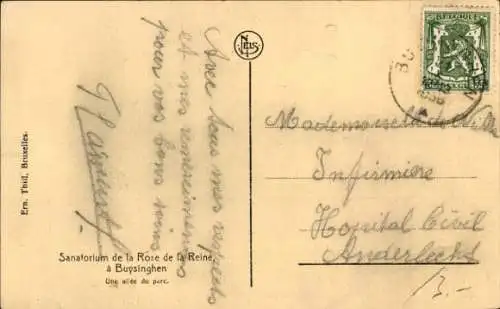 Avec tous mes respects
et mes remerciements
pour vos bons soins
BELGIQUE
BELGIË
Mademoiselle de
Infirmière
Hopital Civil
Anderlecht
B.-
Ern. Thill, Bruxelles.
Sanatorium de la Rose de la Reine,
à Buysinghen
Une allée du parc.